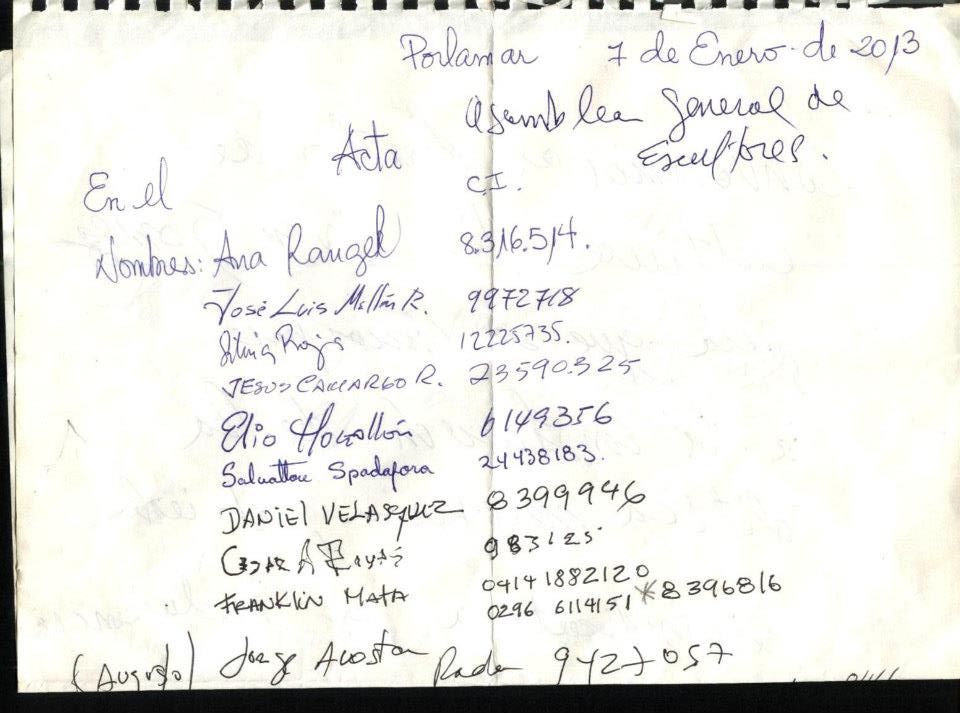 Porlamar 7 de Enero de 2013
Asamblea General de
Acta Escultores.
En el C.I.
Nombres: Ana Rangel 8.316.514.
José Luis Millán R. 9972718
Rojas 12225735.
JESUS CAMARGO R. 23590.325
Elio 6149356
Salvattore Spadafora 24438183.
DANIEL VELASQUEZ 8399946
Cesar A 983125
04141882120
FRANKLIN MATA 0296 6114151 *8396816
(Augusto) Jorge Acosta Rada 9427057